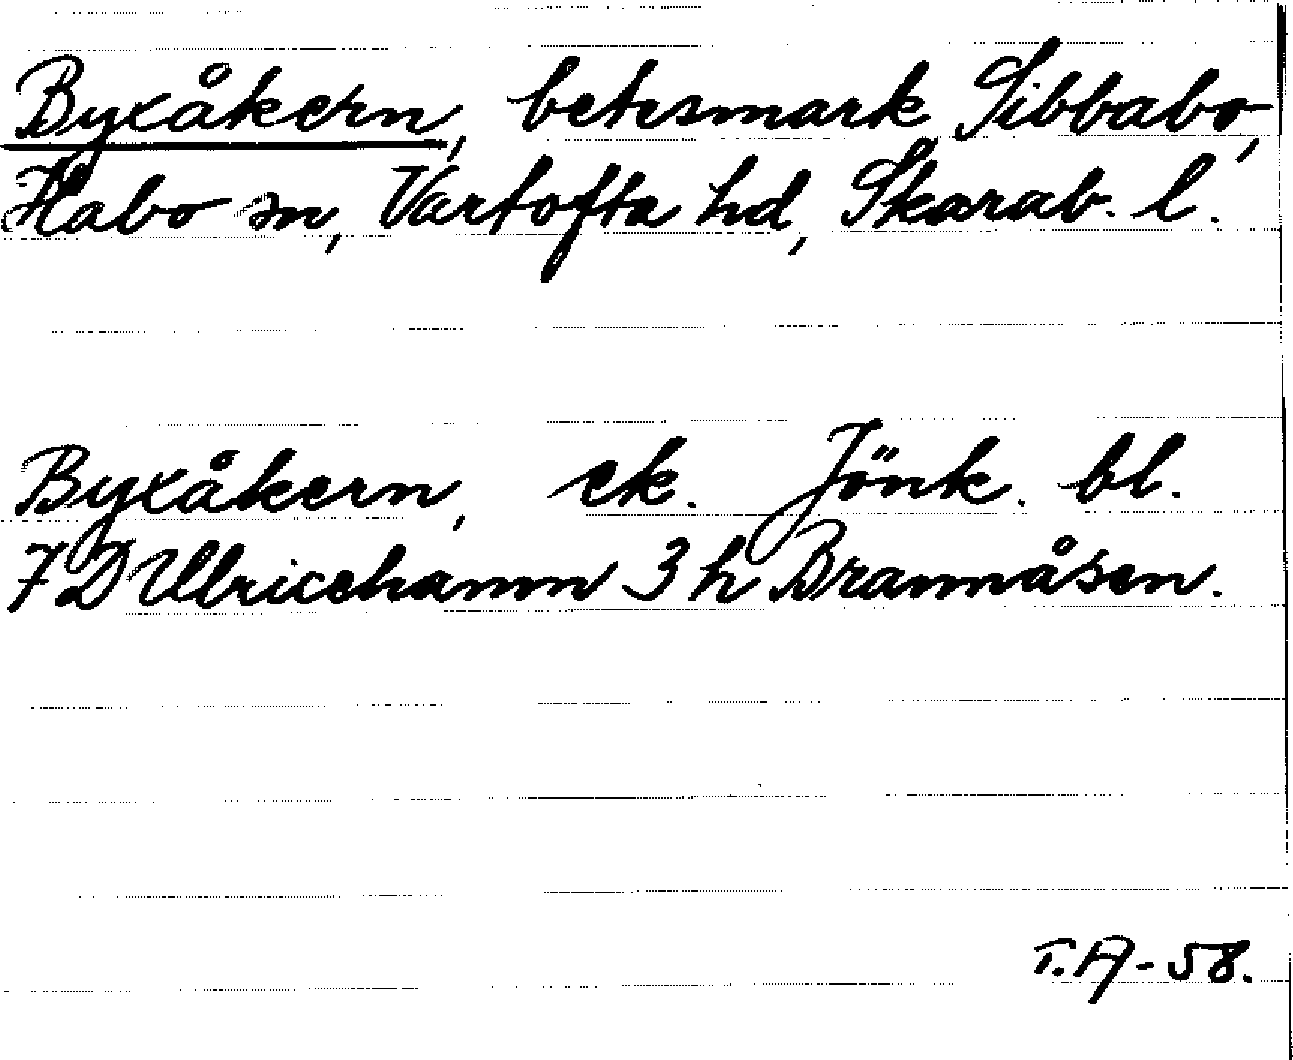 Byxåkern, betesmark Sibbabo,
Habo sn, Vartofta hd, Skarab. l.
Byxåkern, ek. Jönk. bl.
7 D Ulricehamn 3 h Brannåsen.
T.A-58.